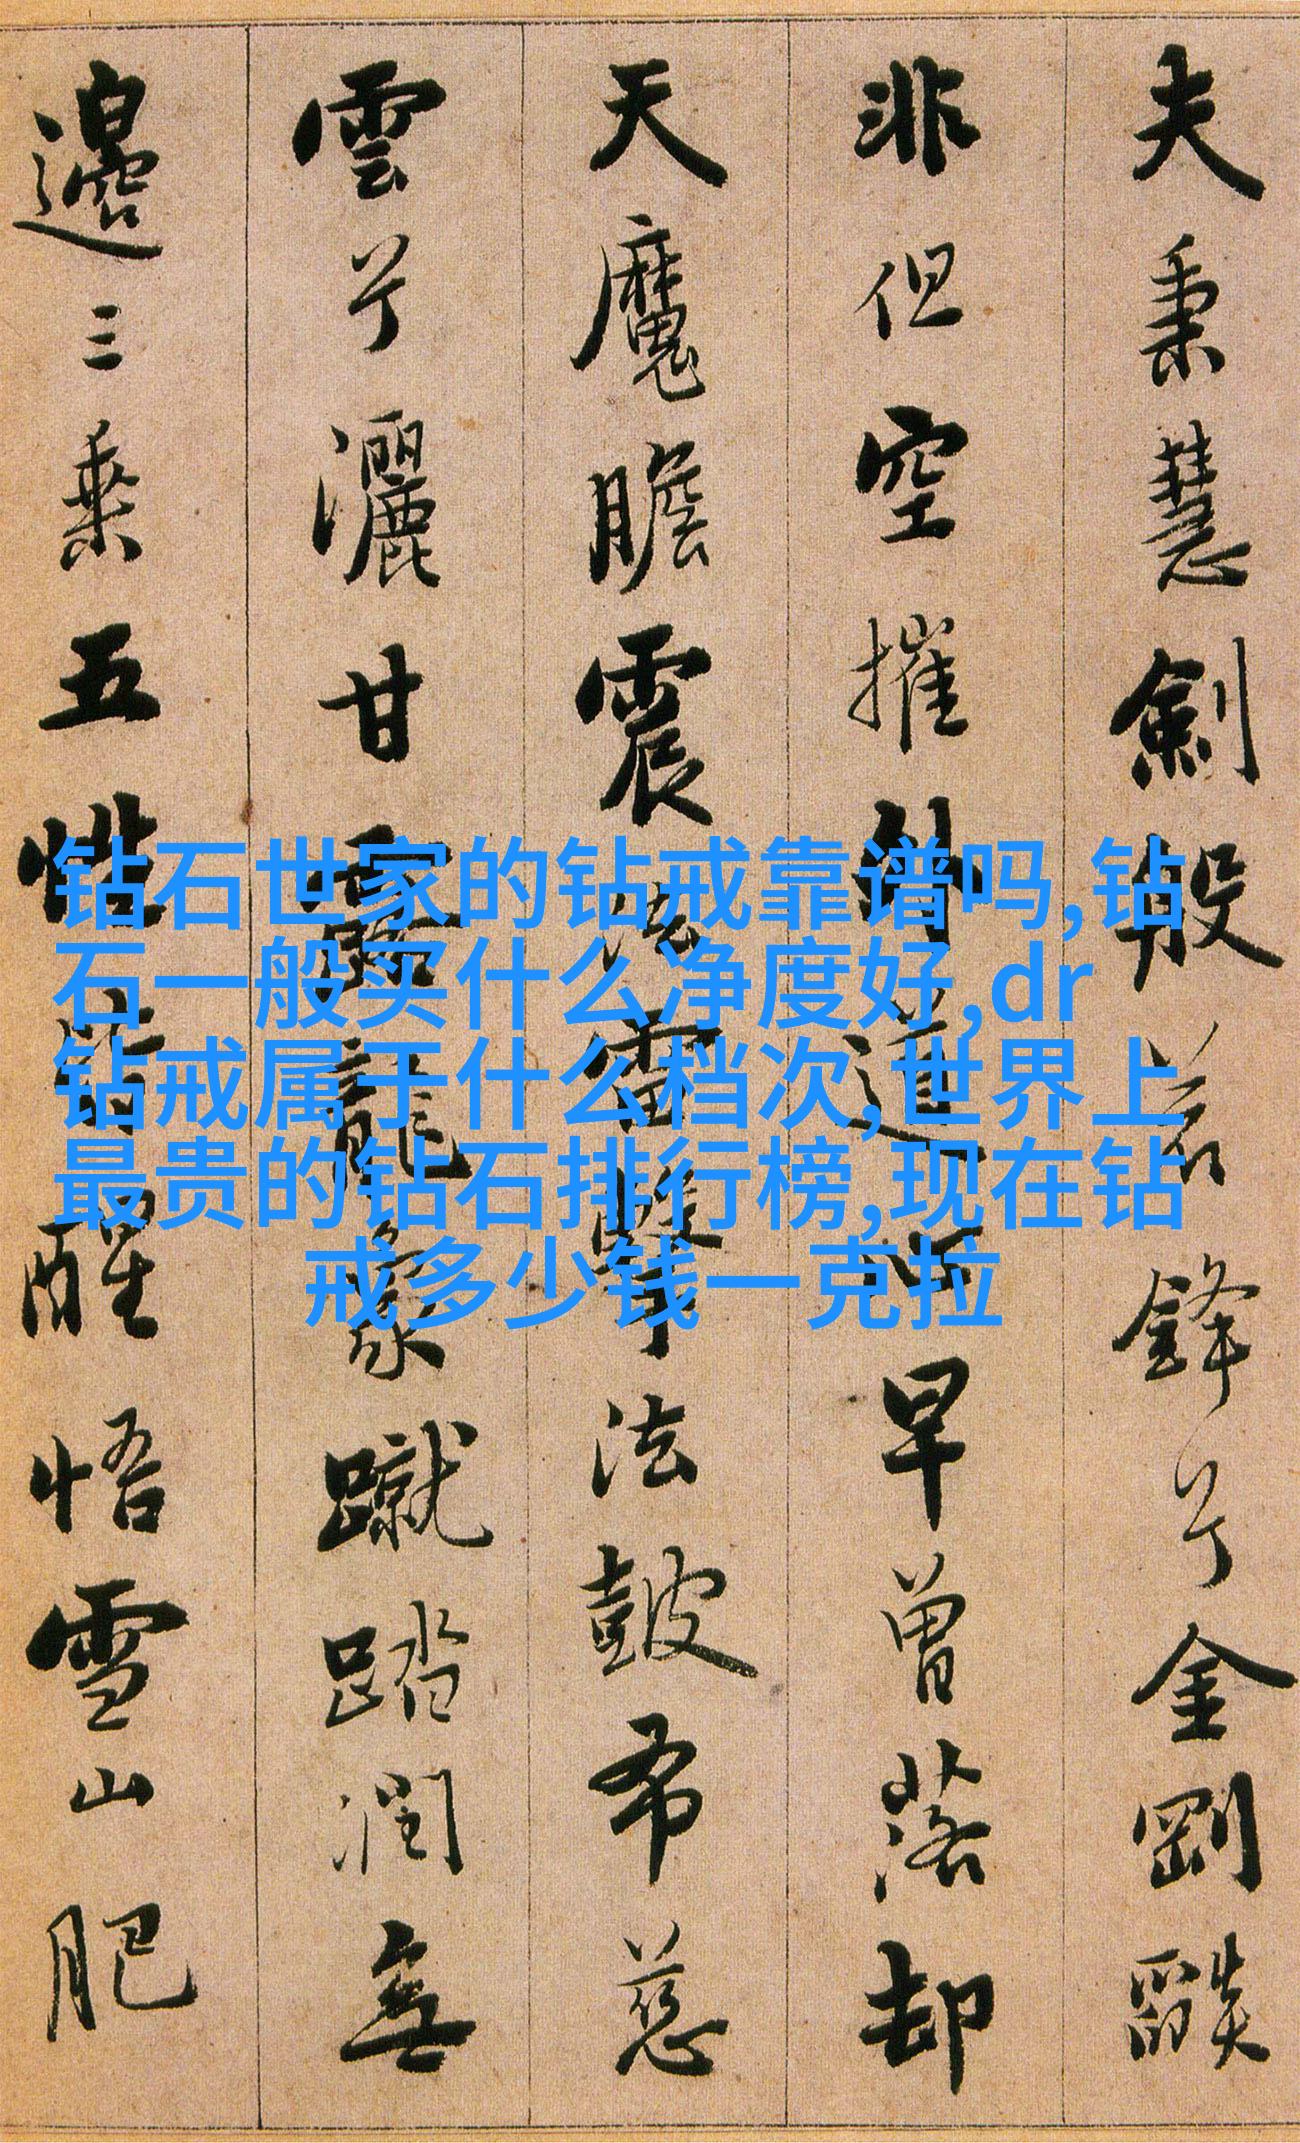 夫秉慧劍般若鋒兮金剛燄
非但空摧外道心早曾落却
天魔膽震法雷擊法皷布慈
雲兮灑甘露龍象蹴踏潤無
邊三乘五性皆醒悟雪山肥
钻石世家的钻戒靠谱吗,钻
石一般买什么净度好,dr
钻戒属于什么档次,世界上
最贵的钻石排行榜,现在钻
戒多少钱一克拉